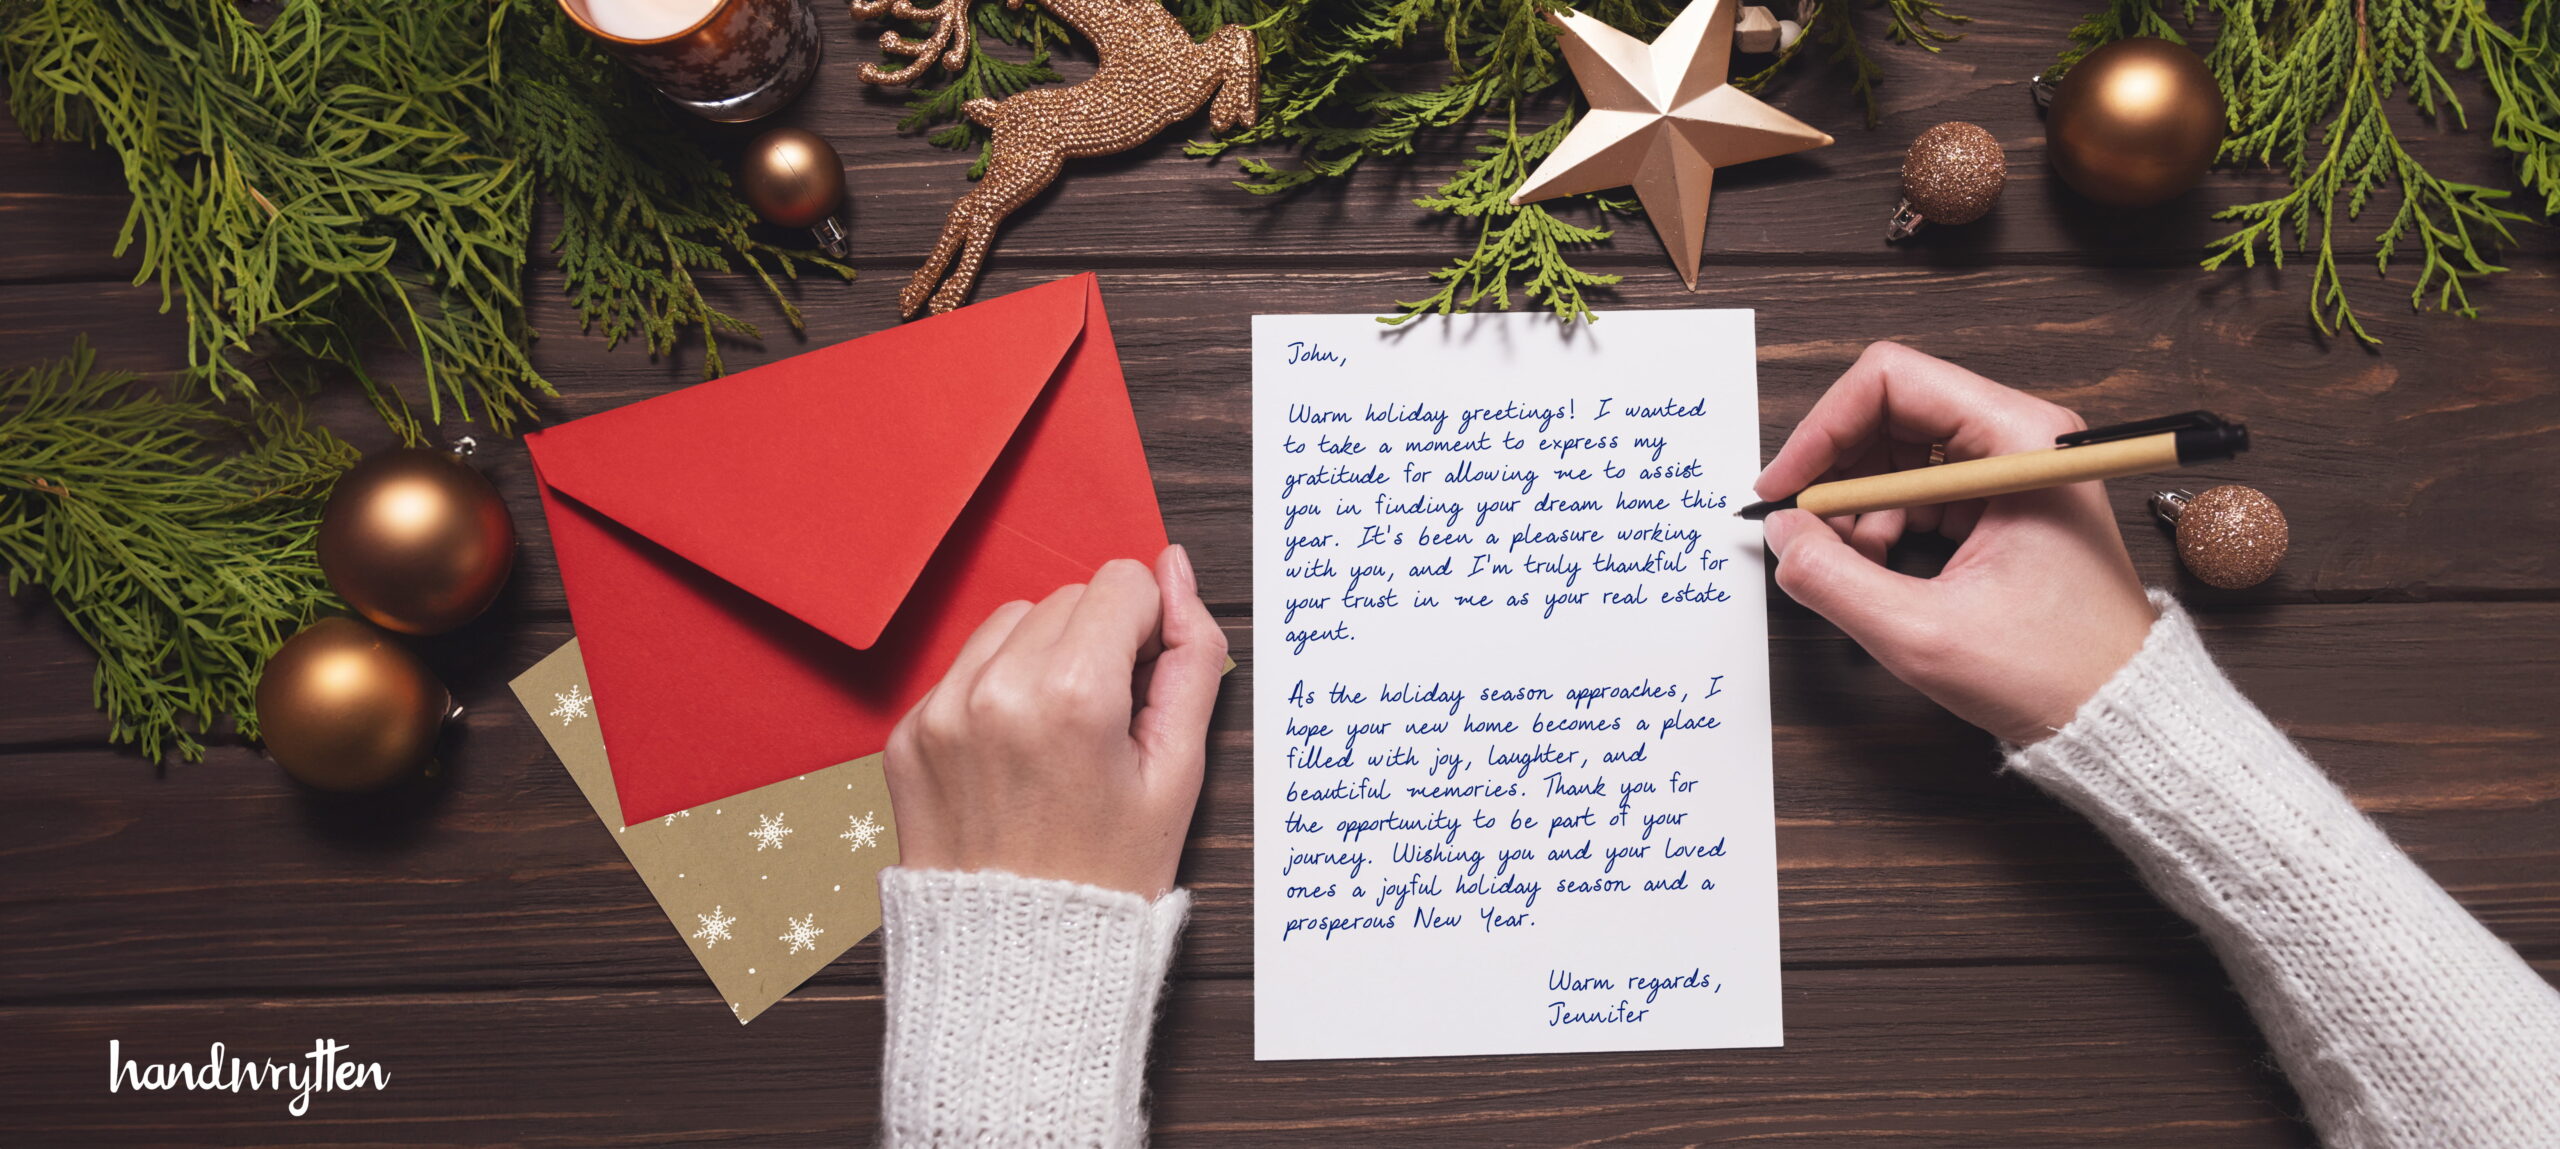 John,
Warm holiday greetings! I wanted
to take a moment to express my
gratitude for allowing me to assist
you in finding your dream home this
year. It's been a pleasure working
with you, and I'm truly thankful for
your trust in me as your real estate
agent.
As the holiday season approaches, I
hope your new home becomes a place
filled with joy, laughter, and
beautiful memories. Thank you for
the opportunity to be part of your
journey. Wishing you and your loved
ones a joyful holiday season and a
prosperous New Year.
Warm regards,
Jennifer
handwrytten